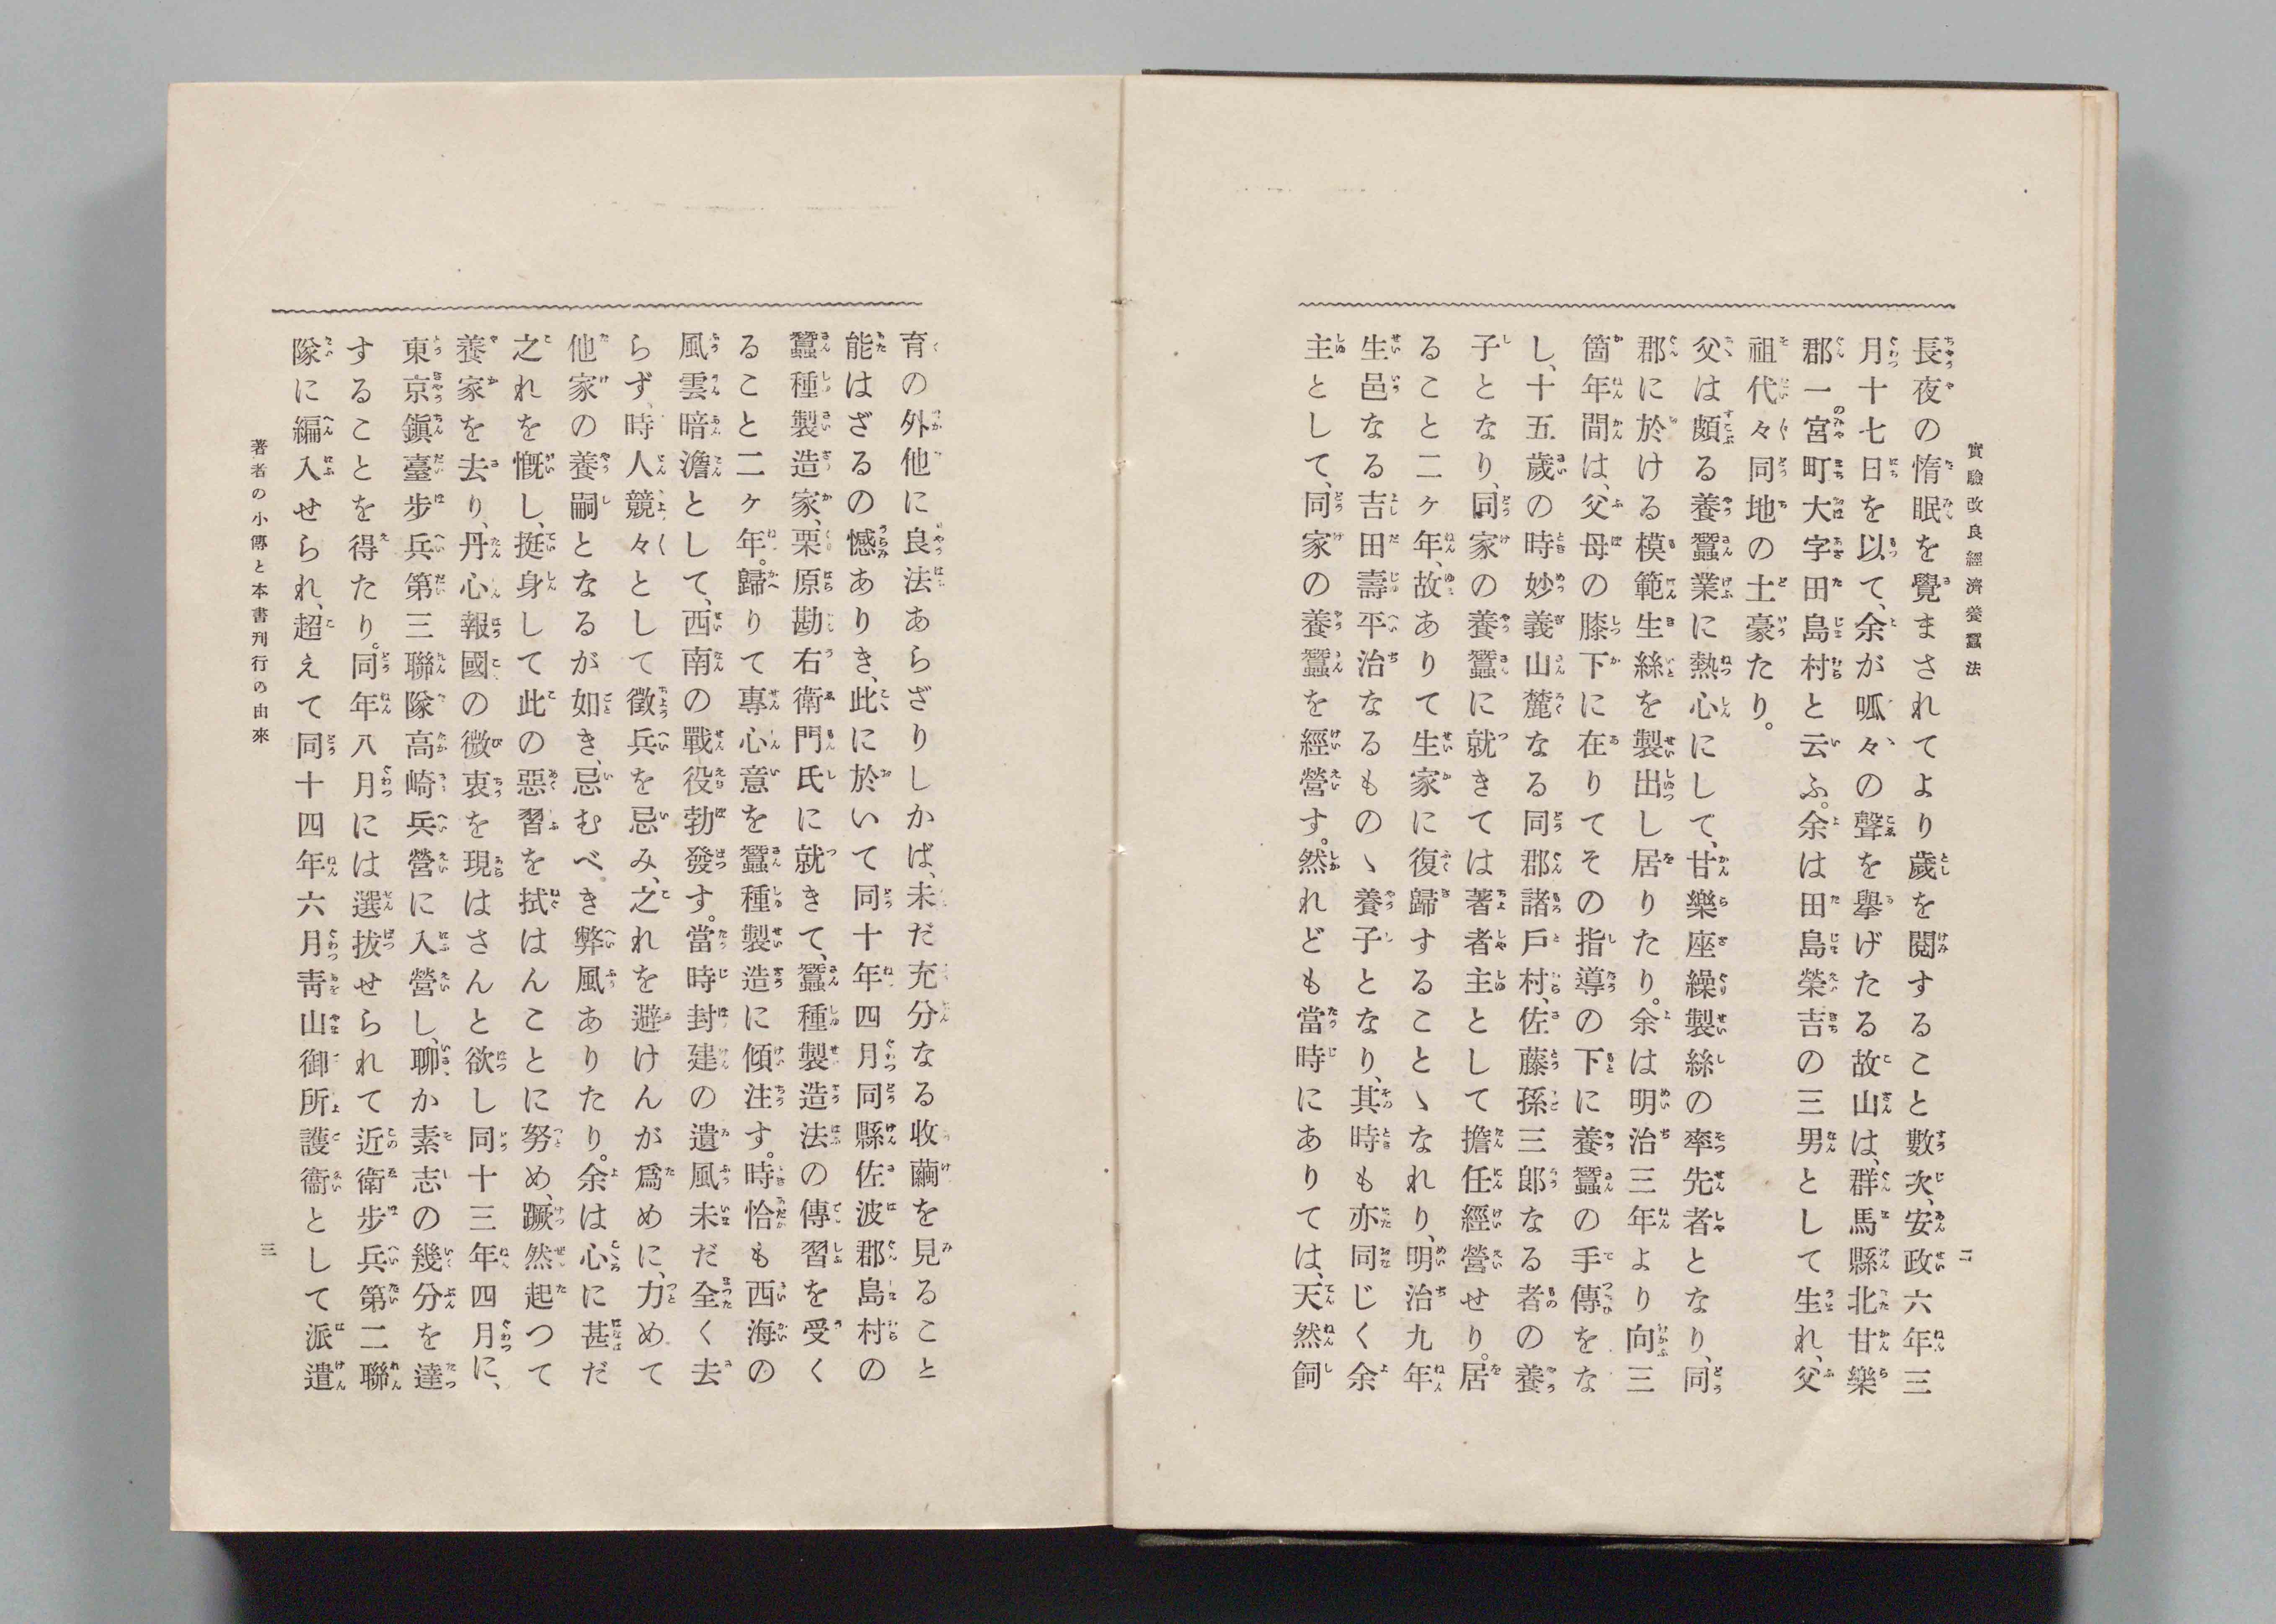 實驗改良經濟養蠶法
二
長夜の惰眠を覺まされてより歲を閱すること數次、安政六年三
月十七日を以て、余が呱々の聲を擧げたる故山は、群馬縣北甘樂
郡一宮町大字田島村と云ふ。余は田島榮吉の三男として生れ、父
祖代々同地の土豪たり。
父は頗る養蠶業に熱心にして、甘樂座繰製絲の率先者となり、同
郡に於ける模範生絲を製出し居りたり。余は明治三年より向三
箇年間は、父母の膝下に在りてその指導の下に養蠶の手傳をな
し、十五歲の時妙義山麓なる同郡諸戶村、佐藤孫三郞なる者の養
子となり、同家の養蠶に就きては著者主として擔任經營せり。居
ること二ヶ年、故ありて生家に復歸することゝなれり、明治九年
生邑なる吉田壽平治なるものゝ養子となり、其時も亦同じく余
主として、同家の養蠶を經營す。然れども當時にありては、天然飼
育の外他に良法あらざりしかば、未だ充分なる收繭を見ること
能はざるの憾ありき、此に於いて同十年四月同縣佐波郡島村の
蠶種製造家、栗原勘右衛門氏に就きて、蠶種製造法の傳習を受く
ること二ヶ年。歸りて專心意を蠶種製造に傾注す。時恰も西海の
風雲暗澹として、西南の戰役勃發す。當時封建の遺風未だ全く去
らず、時人競々として徵兵を忌み、之れを避けんが爲めに、力めて
他家の養嗣となるが如き、忌むべき弊風ありたり。余は心に甚だ
之れを慨し、挺身して此の惡習を拭はんことに努め、蹶然起つて
養家を去り、丹心報國の微衷を現はさんと欲し同十三年四月に、
東京鎭臺步兵第三聯隊高崎兵營に入營し、聊か素志の幾分を達
することを得たり。同年八月には選拔せられて近衛步兵第二聯
隊に編入せられ、超えて同十四年六月靑山御所護衞として派遣
著者の小傳と本書刊行の由來
三